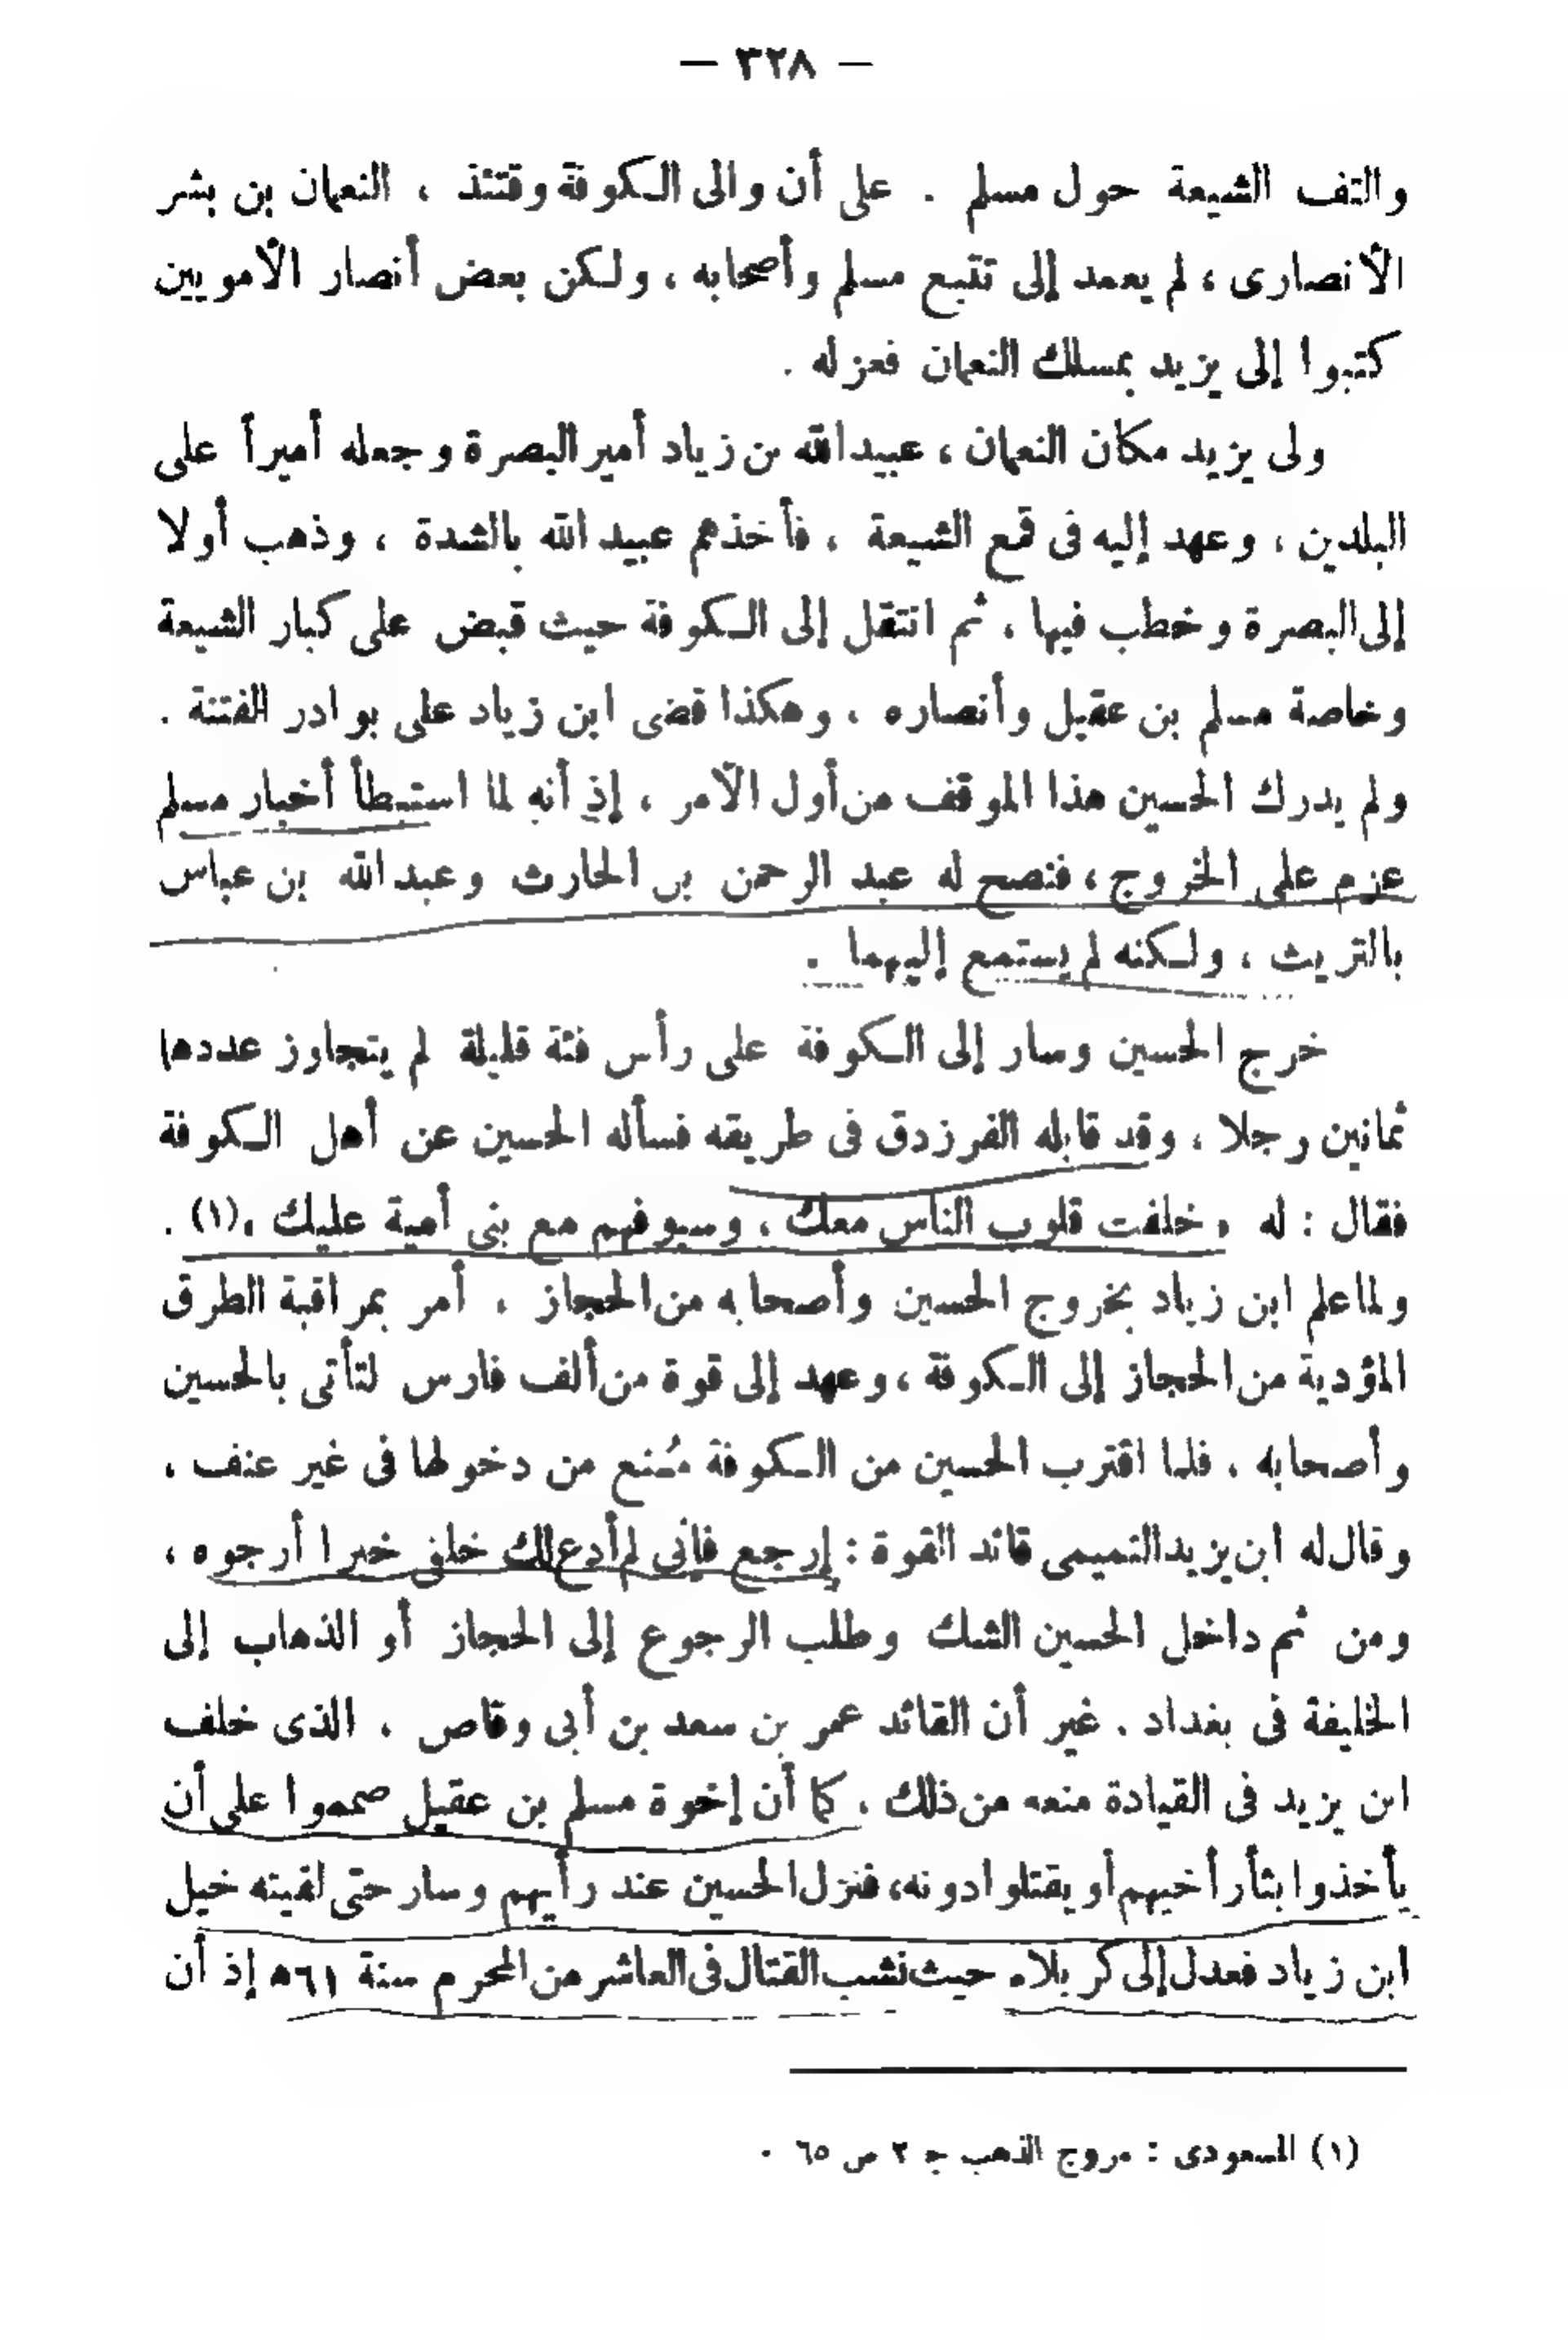 — ٣٢٨ —
والتف الشيعة حول مسلم . على أن والى الكوفة وقتئذ ، النعمان بن بشر
الأنصارى ، لم يعمد إلى تتبع مسلم وأصحابه ، ولكن بعض أنصار الأمويين
كتبوا إلى يزيد بمسلك النعمان فعزله .
ولى يزيد مكان النعمان ، عبيد الله بن زياد أمير البصرة وجعله أميراً على
البلدين ، وعهد إليه فى قمع الشيعة ، فأخذهم عبيد الله بالشدة ، وذهب أولا
إلى البصرة وخطب فيها ، ثم انتقل إلى الكوفة حيث قبض على كبار الشيعة
وخاصة مسلم بن عقيل وأنصاره ، وهكذا قضى ابن زياد على بوادر الفتنة .
ولم يدرك الحسين هذا الموقف من أول الأمر ، إذ أنه لما استبطأ أخبار مسلم
عزم على الخروج ، فنصح له عبد الرحمن بن الحارث وعبد الله بن عباس
بالتريث ، ولكنه لم يستمع إليهما .
خرج الحسين وسار إلى الكوفة على رأس فئة قليلة لم يتجاوز عددها
ثمانين رجلا ، وقد قابله الفرزدق فى طريقه فسأله الحسين عن أهل الكوفة
فقال : له « خلفت قلوب الناس معك ، وسيوفهم مع بنى أمية عليك »(١) .
ولما علم ابن زياد بخروج الحسين وأصحابه من الحجاز ، أمر بمراقبة الطرق
المؤدية من الحجاز إلى الكوفة ، وعهد إلى قوة من ألف فارس لتأتى بالحسين
وأصحابه ، فلما اقترب الحسين من الكوفة مُنع من دخولها فى غير عنف ،
وقال له ابن يزيد التميمى قائد القوة : إرجع فإنى لم أدع لك خلفى خيرا أرجوه ،
ومن ثم داخل الحسين الشك وطلب الرجوع إلى الحجاز أو الذهاب إلى
الخليفة فى بغداد . غير أن القائد عمر بن سعد بن أبى وقاص ، الذى خلف
ابن يزيد فى القيادة منعه من ذلك ، كما أن إخوة مسلم بن عقيل صمموا على أن
يأخذوا بثأر أخيهم أو يقتلوا دونه، فنزل الحسين عند رأيهم وسار حتى لقيته خيل
ابن زياد فعدل إلى كربلاء حيث نشب القتال فى العاشر من المحرم سنة ٦١ﻫ إذ أن
(١) المسعودى : مروج الذهب ج ٢ ص ٦٥ .